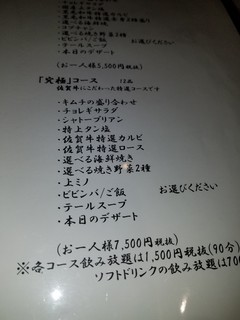 ・選べる野菜2種
・ビビンバ/ご飯 お選びください
・テールスープ
・本日のデザート
(お一人様5,500円税抜)
『究極』コース 12品
佐賀牛にこだわった特選コースです
・キムチの盛り合わせ
・チョレギサラダ
・シャトーブリアン
・特上タン塩
・佐賀牛特選カルビ
・佐賀牛特選ロース
・選べる海鮮焼き
・選べる焼き野菜2種
・上ミノ
・ビビンバ/ご飯 お選びください
・テールスープ
・本日のデザート
(お一人様7,500円税抜)
※各コース飲み放題は1,500円税抜(90分)
ソフトドリンクの飲み放題は700